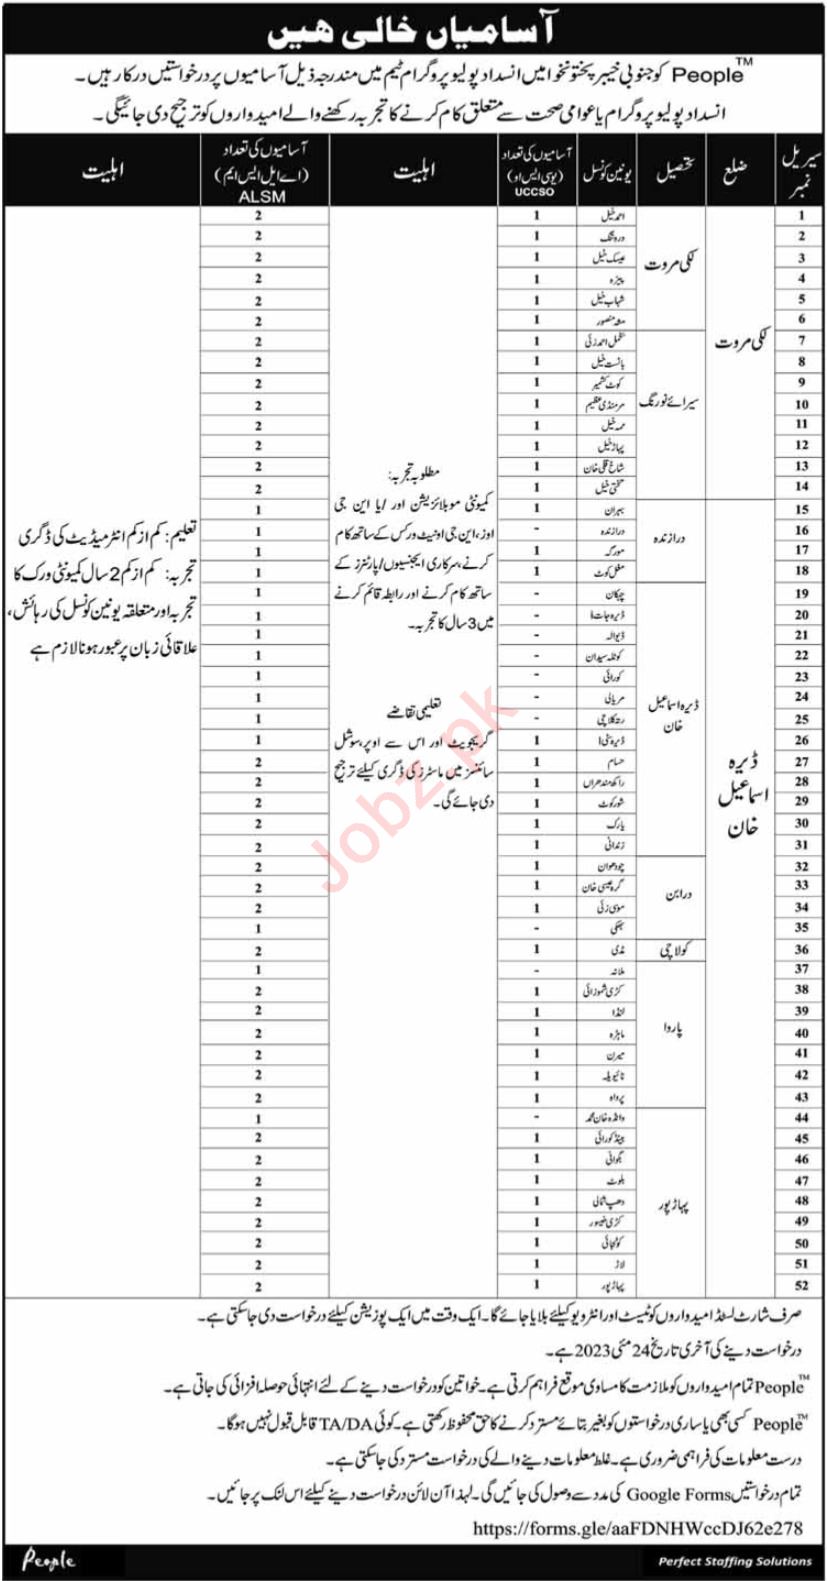 آسامیاں خالی ھیں
People™ کو جنوبی خیبر پختونخوا میں انسداد پولیو پروگرام ٹیم میں مندرجہ ذیل آسامیوں پر درخواستیں درکار ہیں۔
انسداد پولیو پروگرام یا عوامی صحت سے متعلق کام کرنے کا تجربہ رکھنے والے امیدواروں کو ترجیح دی جائیگی۔
سیریل نمبر | ضلع | تحصیل | یونین کونسل | آسامیوں کی تعداد (یو سی ایس او) UCCSO | اہلیت | آسامیوں کی تعداد (اے ایل ایس ایم) ALSM | اہلیت
لکی مروت
لکی مروت
1 احمد خیل 1 2
2 درہ تنگ 1 2
3 عیسک خیل 1 2
4 پیزہ 1 2
5 شہاب خیل 1 2
6 مشہ منصور 1 2
سرائے نورنگ
7 احمدزئی 1 2
8 بائست خیل 1 2
9 کوٹ کشمیر 1 2
10 سرمندی عظیم 1 2
11 ممہ خیل 1 2
12 پہاڑ خیل 1 2
13 شاخ قلی خان 1 2
14 تختی خیل 1 2
ڈیرہ اسماعیل خان
درازندہ
15 بہران 1 1
16 درازندہ - 1
17 مورگہ 1 1
18 مغل کوٹ 1 1
ڈیرہ اسماعیل خان
19 چہکان - 1
20 ڈیرہ جات ا - 1
21 ڈیوالہ - 1
22 کوٹلہ سیدان - 1
23 کورائی - 1
24 مریالی - 1
25 رتہ کلاچی - 1
26 ڈیرہ سٹی ا 1 1
27 حسام 1 2
28 راکھ مندھراں 1 2
29 شور کوٹ 1 2
30 یارک 1 2
31 زندانی 1 2
درابن
32 چودھوان 1 2
33 گرہ عیسیٰ خان 1 2
34 موسیٰ زئی 1 2
35 - 1
کولاچی
36 مڈی 1 2
پاروا
37 ملانہ - 1
38 کڑی شموزائی 1 2
39 لنڈا 1 2
40 ماہڑہ 1 2
41 میرن 1 2
42 نائیویلہ 1 2
43 پرواہ 1 2
پہاڑ پور
44 وانڈہ خان محمد - 1
45 بینڈ کورائی 1 2
46 بگوانی 1 2
47 بلوٹ 1 2
48 دھپ شمالی 1 2
49 کڑی خیسور 1 2
50 کوٹجائی 1 2
51 لاڑ 1 2
52 پہاڑ پور 1 2
مطلوبہ تجربہ:
کمیونٹی موبلائزیشن اور / یا این جی
اوز، این جی او نیٹ ورکس کے ساتھ کام
کرنے، سرکاری ایجنسیوں/پارٹنرز کے
ساتھ کام کرنے اور رابطہ قائم کرنے
میں 3 سال کا تجربہ۔
تعلیمی تقاضے
گریجویٹ اور اس سے اوپر، سوشل
سائنسز میں ماسٹرز کی ڈگری کیلئے ترجیح
دی جائے گی۔
تعلیم: کم از کم انٹرمیڈیٹ کی ڈگری
تجربہ: کم از کم 2 سال کمیونٹی ورک کا
تجربہ اور متعلقہ یونین کونسل کی رہائش،
علاقائی زبان پر عبور ہونا لازم ہے
Jobz.pk
صرف شارٹ لسٹڈ امیدواروں کو ٹیسٹ اور انٹرویو کیلئے بلایا جائے گا۔ ایک وقت میں ایک پوزیشن کیلئے درخواست دی جاسکتی ہے۔
درخواست دینے کی آخری تاریخ 24 مئی 2023 ہے۔
People™ تمام امیدواروں کو ملازمت کا مساوی موقع فراہم کرتی ہے۔ خواتین کو درخواست دینے کے لئے انتہائی حوصلہ افزائی کی جاتی ہے۔
People™ کسی بھی یا ساری درخواستوں کو بغیر بتائے مسترد کرنے کا حق محفوظ رکھتی ہے۔ کوئی TA/DA قابل قبول نہیں ہوگا۔
درست معلومات کی فراہمی ضروری ہے۔ غلط معلومات دینے والے کی درخواست مسترد کی جاسکتی ہے۔
تمام درخواستیں Google Forms کی مدد سے وصول کی جائیں گی۔ لہذا آن لائن درخواست دینے کیلئے اس لنک پر جائیں۔
https://forms.gle/aaFDNHWccDJ62e278
People
Perfect Staffing Solutions